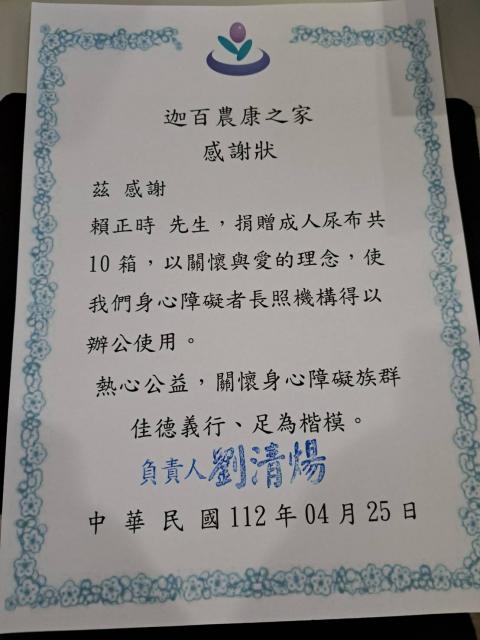 迦百農康之家
感謝狀
茲 感謝
賴正時 先生，捐贈成人尿布共
10 箱，以關懷與愛的理念，使
我們身心障礙者長照機構得以
辦公使用。
熱心公益，關懷身心障礙族群
佳德義行、足為楷模。
負責人劉清煬
中 華 民 國 112 年 04 月 25 日